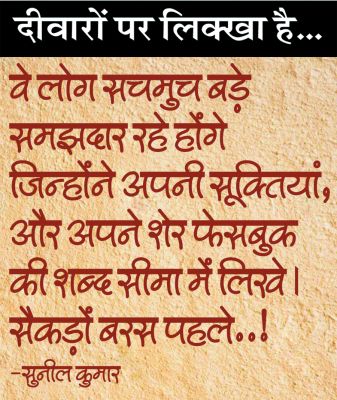 दीवारों पर लिक्खा है...
वे लोग सचमुच बड़े
समझदार रहे होंगे
जिन्होंने अपनी सूक्तियां,
और अपने शेर फेसबुक
की शब्द सीमा में लिखे।
सैकड़ों बरस पहले..!
-सुनील कुमार